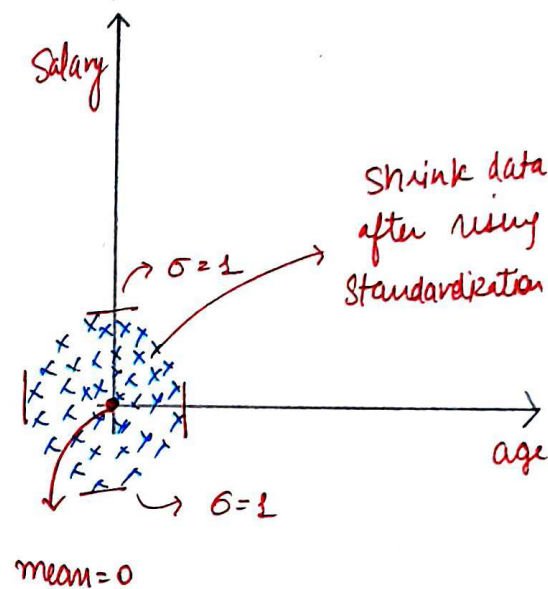 Salary
σ = 1
Shrink data
after using
standardization
age
σ = 1
mean = 0